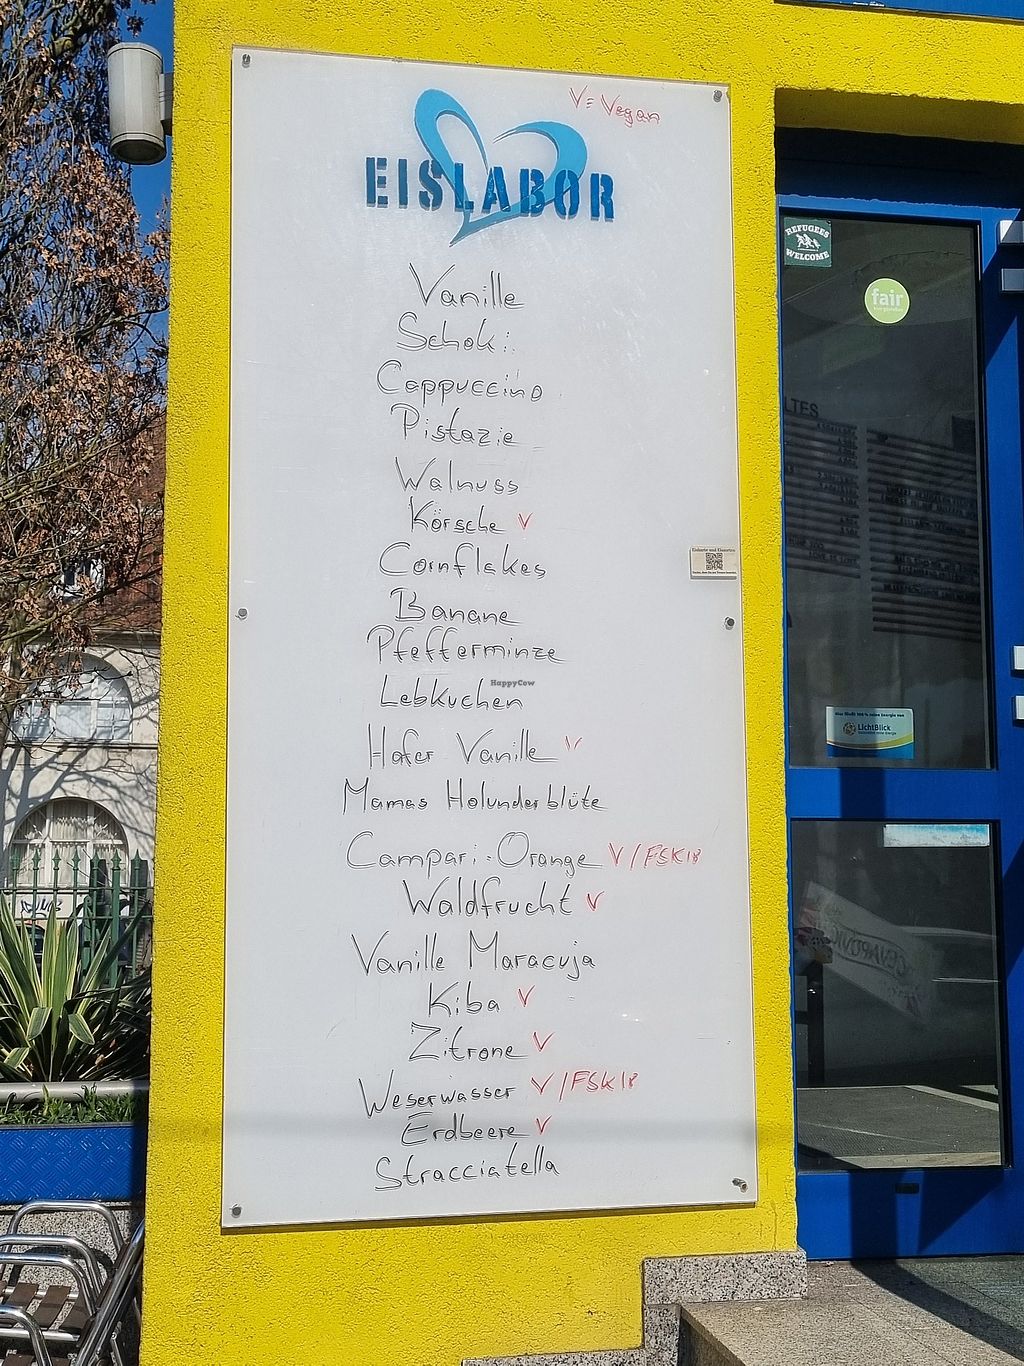 V= Vegan
EISLABOR
Vanille
Schoki
Cappuccino
Pistazie
Walnuss
Körsche V
Cornflakes
Banane
Pfefferminze
Lebkuchen
HappyCow
Hafer Vanille V
Mamas Holunderblüte
Campari-Orange V/FSK18
Waldfrucht V
Vanille Maracuja
Kiba V
Zitrone V
Weserwasser V/FSK18
Erdbeere V
Stracciatella
REFUGEES
WELCOME
fair
LTES
Eiskarte und Eissorten
LichtBlick